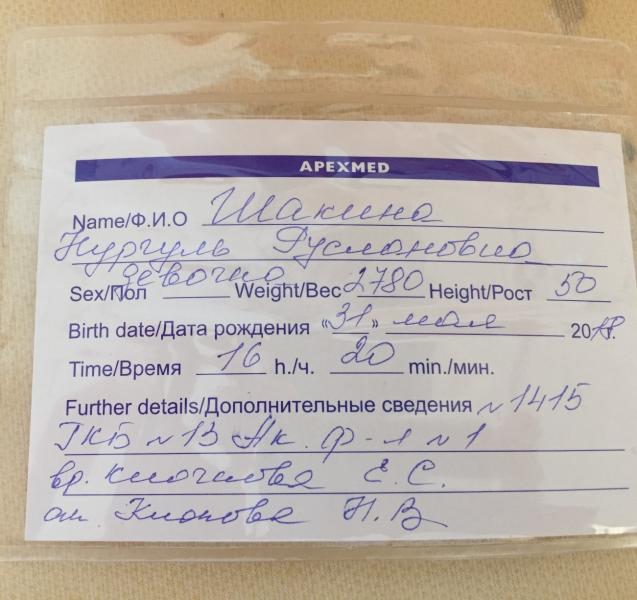 APEXMED
Name/Ф.И.О Шакина
Нургуль Руслановна
Sex/Пол девочка Weight/Вес 2780 Height/Рост 50
Birth date/Дата рождения «31» мая 2018г.
Time/Время 16 h./ч. 20 min./мин.
Further details/Дополнительные сведения №1415
ГКБ №13 Ак. ф-л №1
вр. Е.С.
Н.В